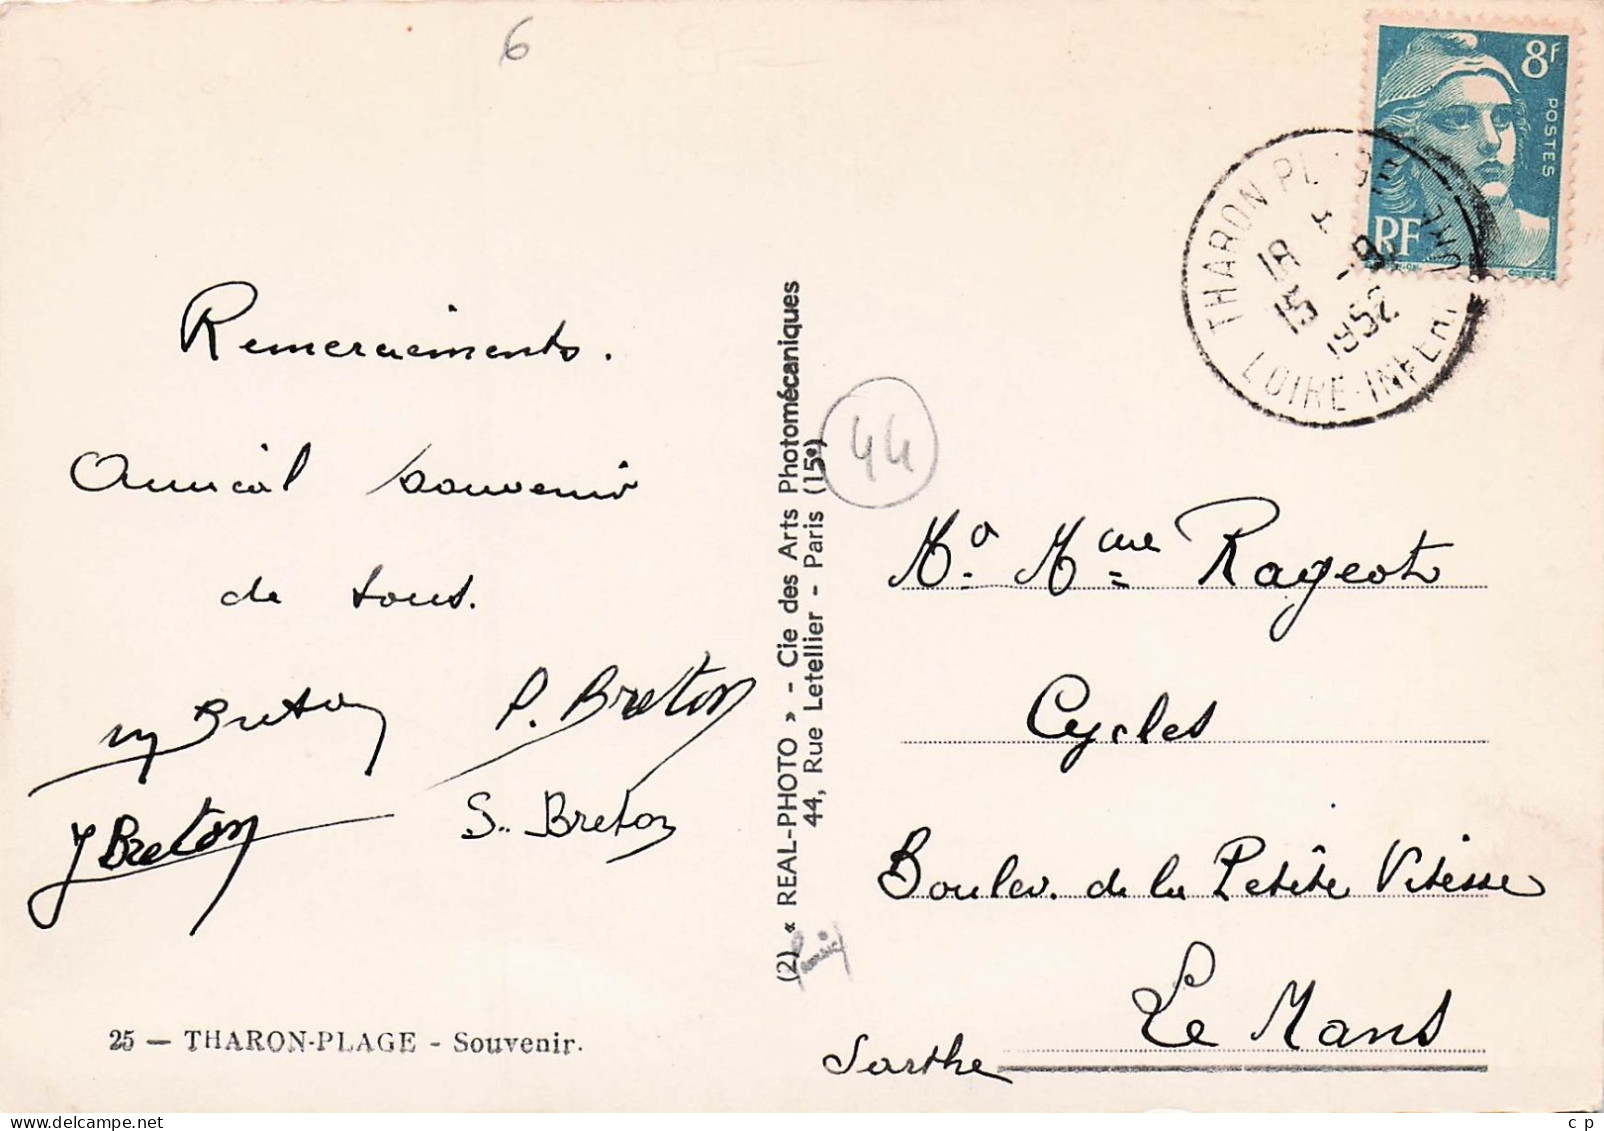 6
8F
POSTES
RF
THARON-PLAGE
18 H
15 -8
1952
LOIRE-INFERE
Remerciements.
Amical souvenir
de tous.
M Breton
P. Breton
J Breton
S. Breton
25 — THARON-PLAGE - Souvenir.
(2) « REAL-PHOTO » - Cie des Arts Photomécaniques
44, Rue Letellier - Paris (15e)
44
Mr. Mme Rageot
Cycles
Boulev. de la Petite Vitesse
Le Mans
Sarthe
delcampe.net
c p